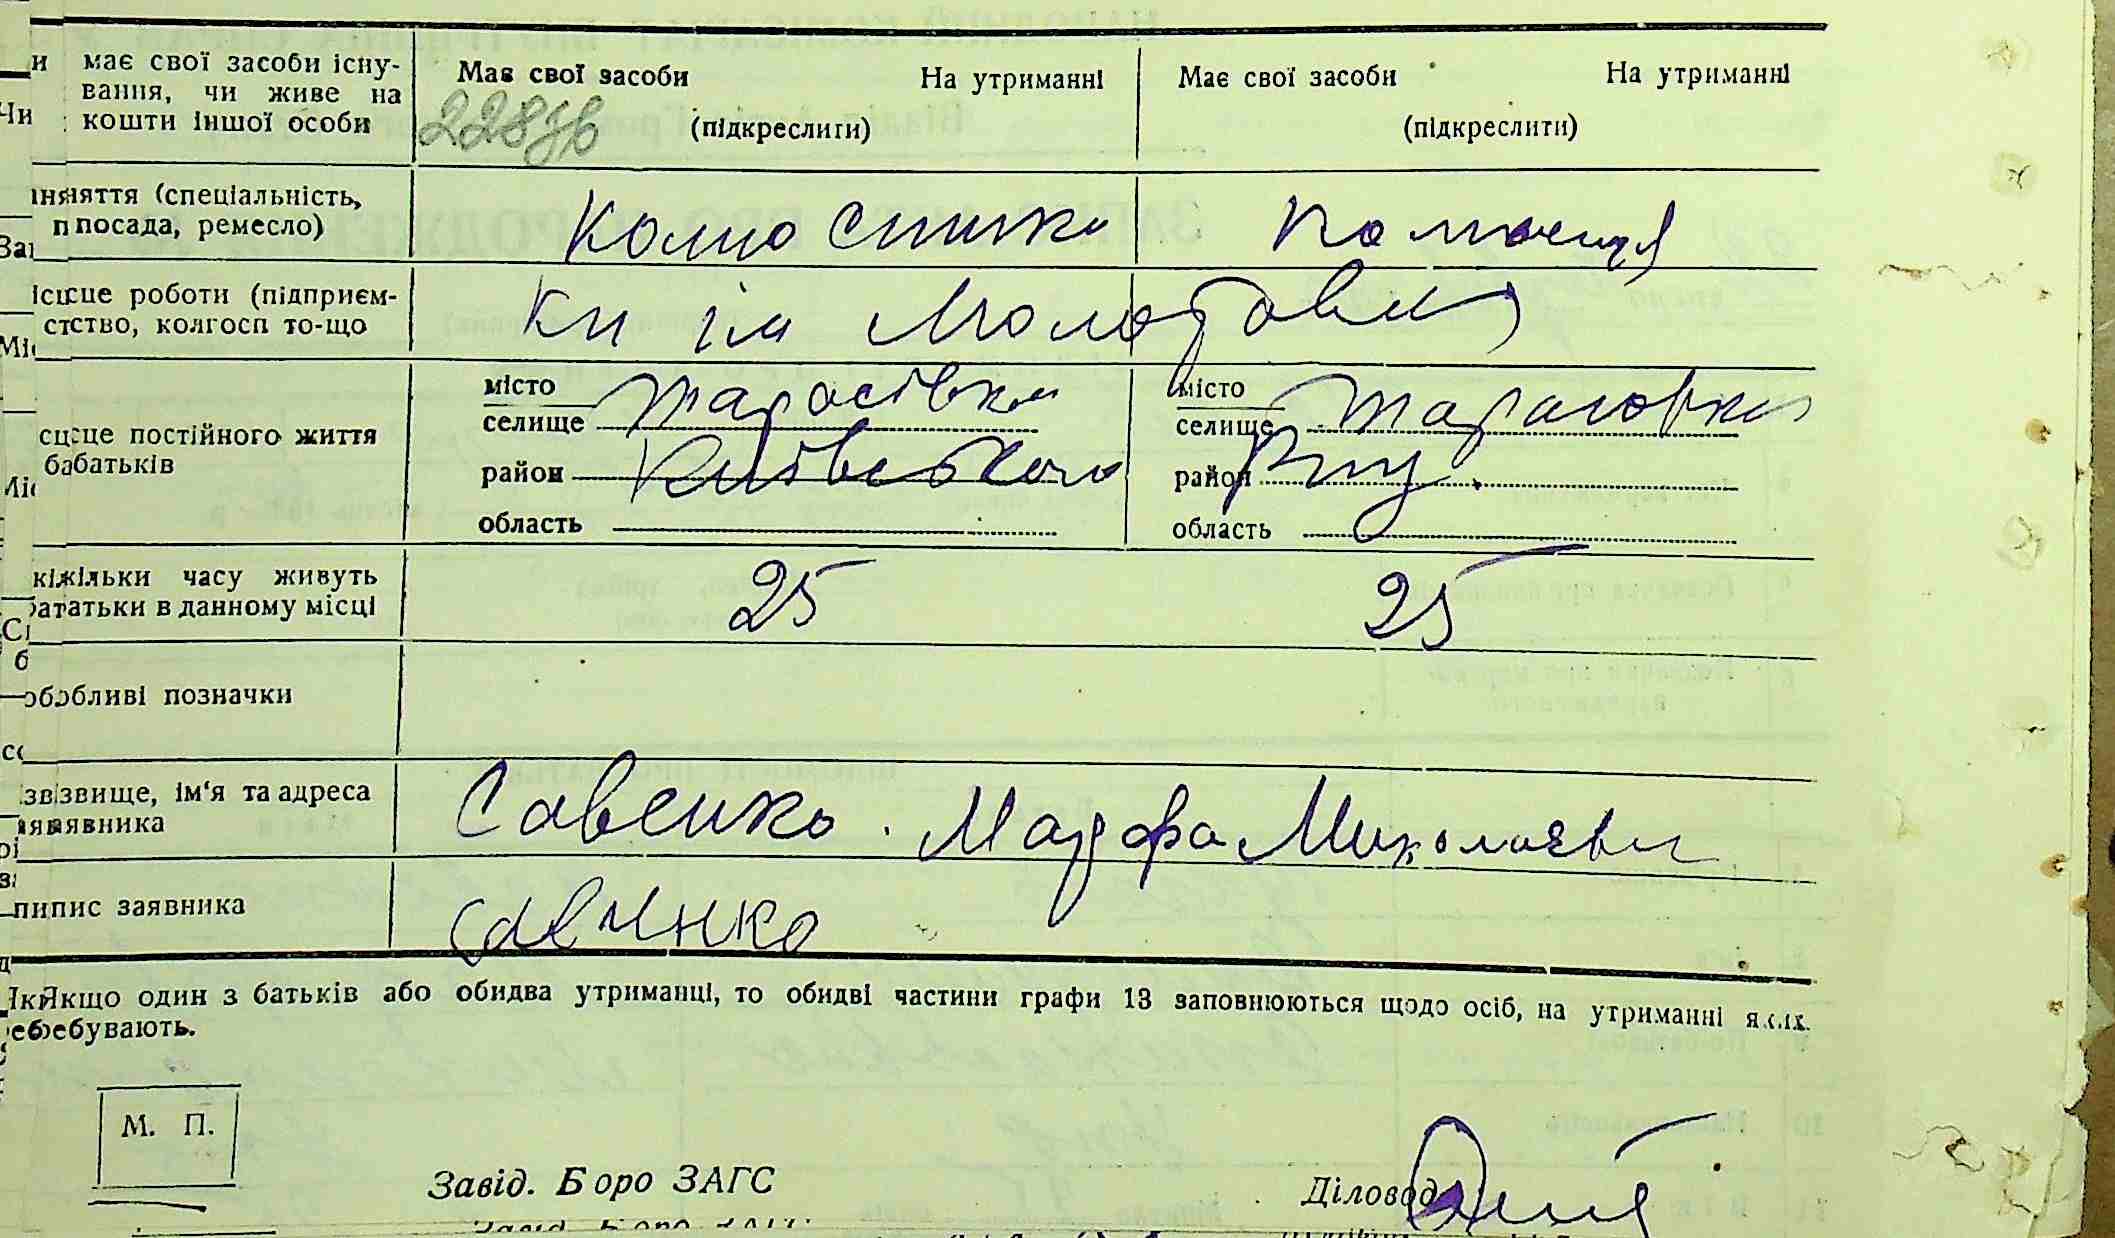 має свої засоби існу-
вання, чи живе на
кошти іншої особи
Має свої засоби На утриманні
(підкреслити)
Має свої засоби На утриманні
(підкреслити)
няття (спеціальність,
посада, ремесло)
це роботи (підприєм-
ство, колгосп то-що
ім Молотова
це постійного життя
батьків
місто
селище Тарасівка
район Київського
область
місто
селище
район
область
кільки часу живуть
батьки в данному місці
25 25
обливі позначки
звище, ім'я та адреса
явника
Савенко Марфа Миколаевн
пипис заявника
Савенко
Якщо один з батьків або обидва утриманці, то обидві частини графи 13 заповнюються щодо осіб, на утриманні яких
ребувають.
М. П.
Завід. Бюро ЗАГС
Діловод